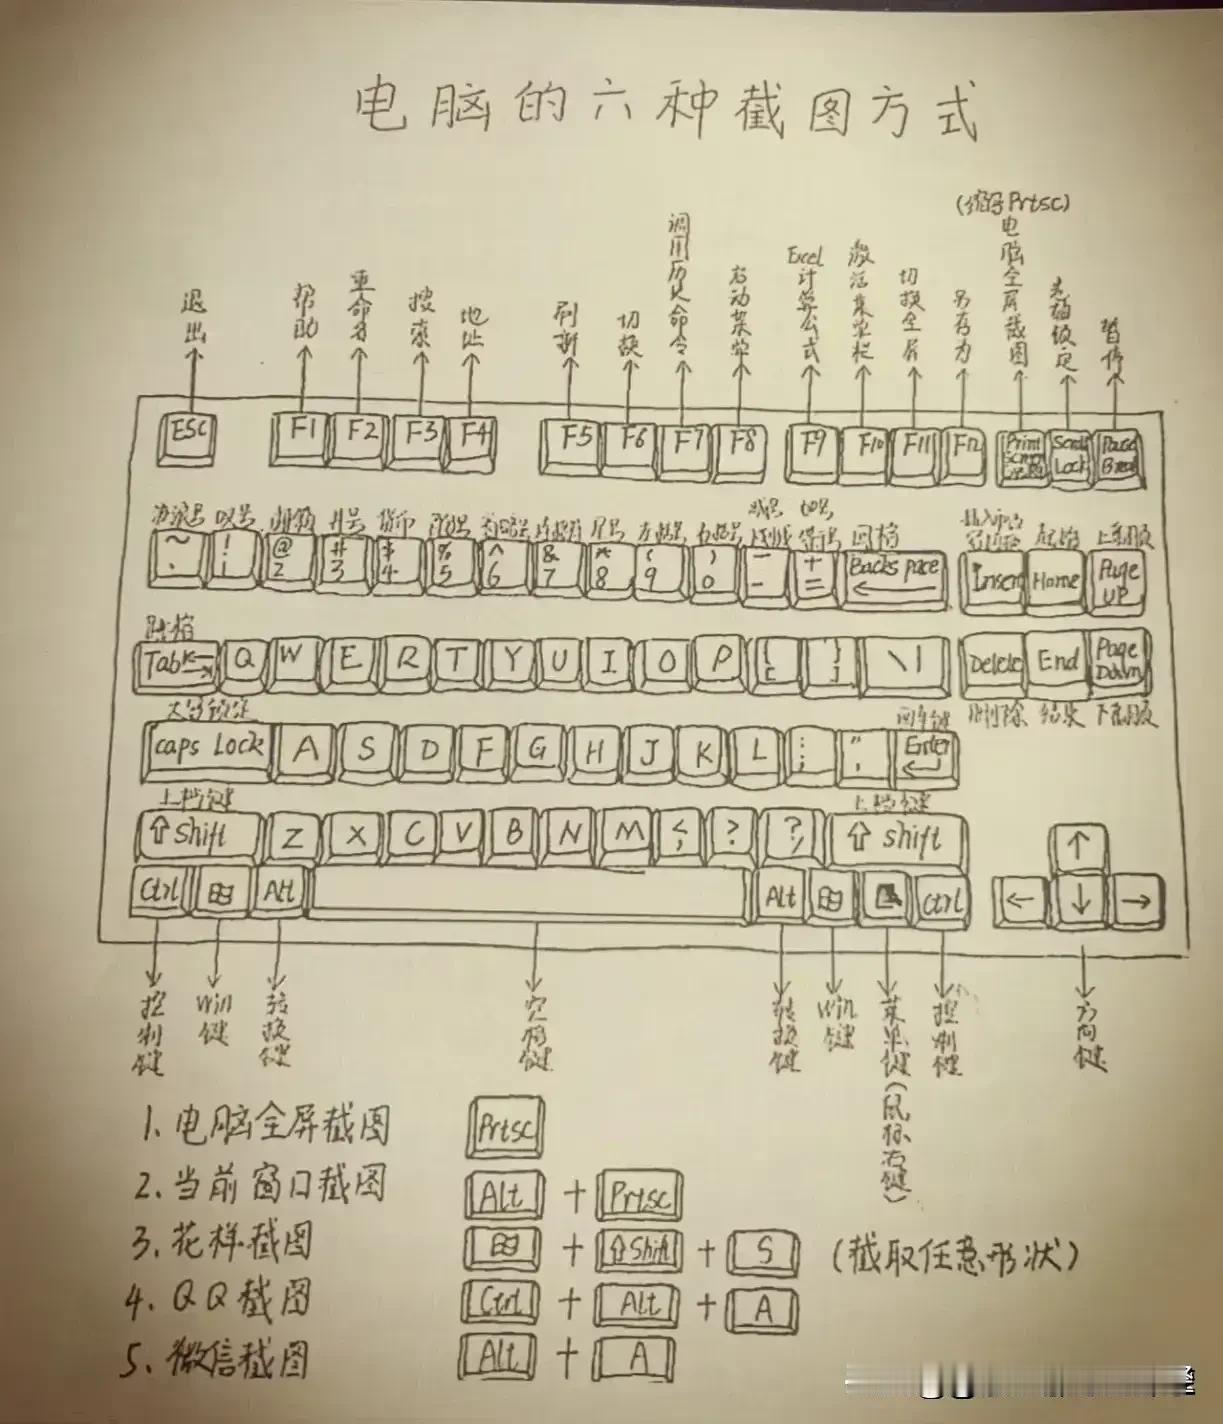 电脑的六种截图方式
(缩写Prtsc)
退出 帮助 重命名 搜索 地址 刷新 切换 调用历史命令 启动菜单 Excel计算公式 激活菜单栏 切换全屏 另存为 电脑全屏截图 暂停
ESC F1 F2 F3 F4 F5 F6 F7 F8 F9 F10 F11 F12 Print Screen Scroll Lock Pause Break
波浪号 叹号 井号 货币 省略号 左括号 右括号 减号 加号 等号 回格 起始 上翻页
~ ! @ # $ % ^ & * ( ) — +
. 1 2 3 4 5 6 7 8 9 0 - = Backspace Insert Home Page UP
跳格
Tab Q W E R T Y U I O P { [ } ] \ | Delete End Page Down
大写锁定 回车键 删除 结束 下翻页
caps Lock A S D F G H J K L : ; " ' Enter
上档键 上档键
Shift Z X C V B N M < , ? ? / shift ↑
Ctrl Alt Alt Ctrl ← ↓ →
控制键 Win键 转换键 空格键 转换键 Win键 菜单键(鼠标右键) 控制键 方向键
1. 电脑全屏截图 Prtsc
2. 当前窗口截图 Alt + Prtsc
3. 花样截图 田 + ⇧Shift + S (截取任意形状)
4. QQ截图 Ctrl + Alt + A
5. 微信截图 Alt + A